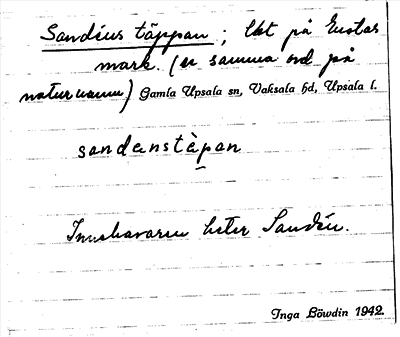 Sandéns täppan; Lht på Gustas
mark. (se samma ord på
naturnamn) Gamla Upsala sn, Vaksala hd, Upsala l.
sandenstàpan
Innehavaren heter Sandén.
Inga Löwdin 1942.